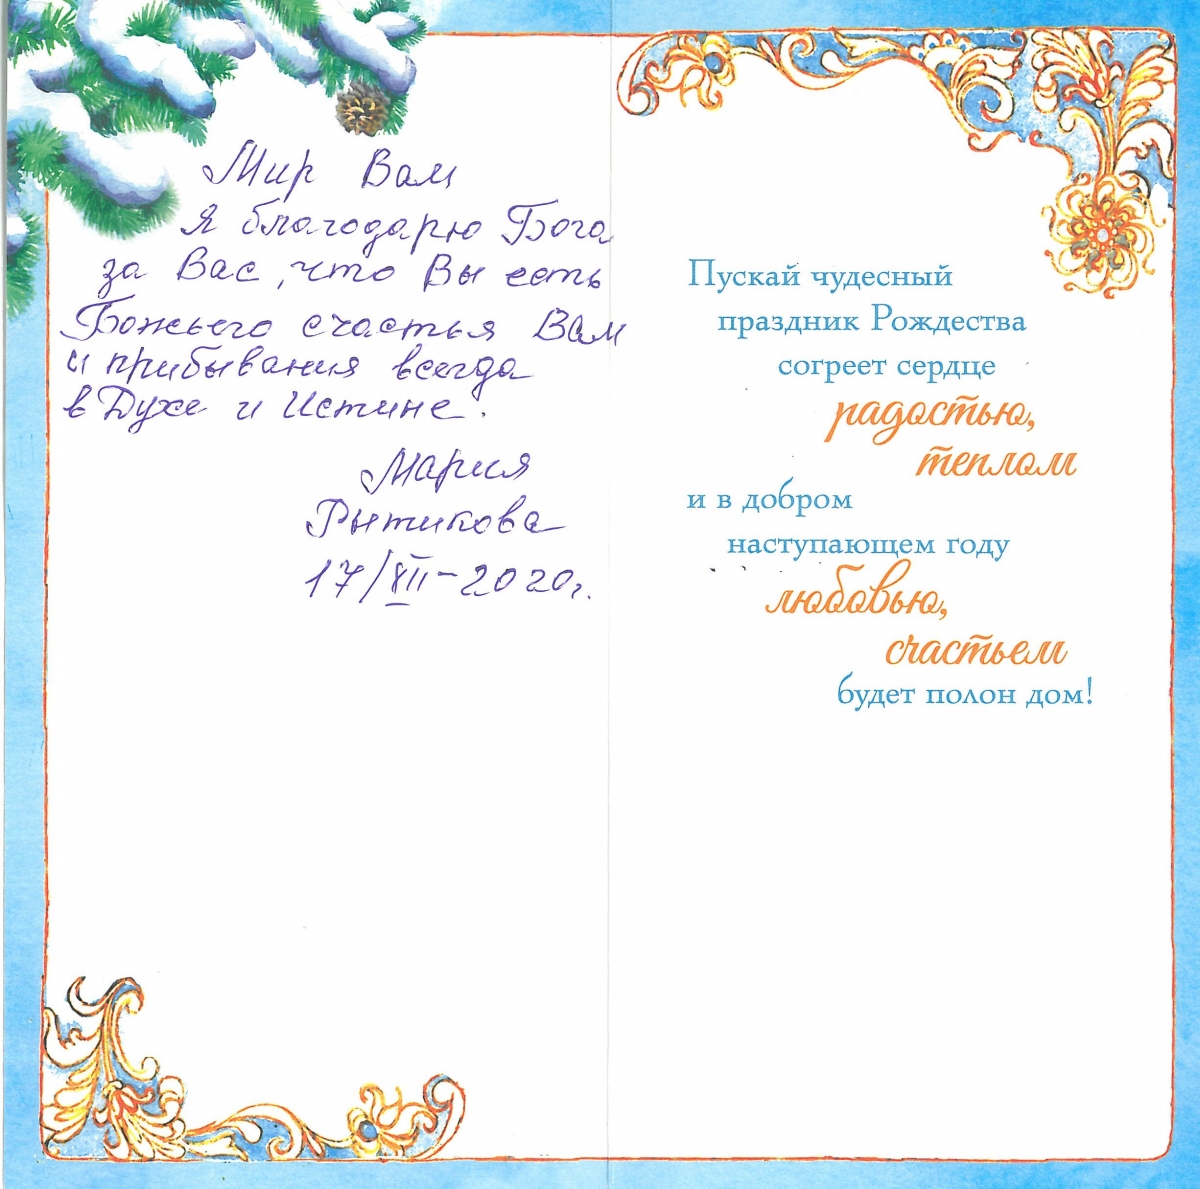 Мир Вам
Я благодарю Бога
за Вас, что Вы есть
Божьего счастья Вам
и прибывания всегда
в Духе и Истине.
Мария
Рытикова
17/XII-2020г.
Пускай чудесный
праздник Рождества
согреет сердце
радостью,
теплом
и в добром
наступающем году
любовью,
счастьем
будет полон дом!